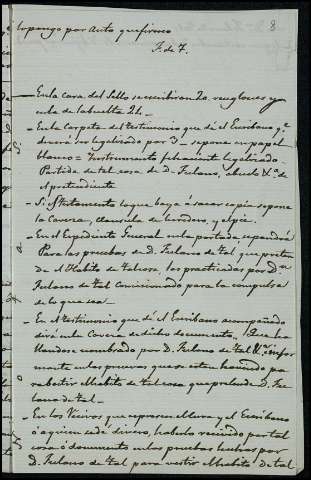 8
lo pongo por Auto que firmo
F. de T.
En la cara del Sello se escribiran 20 renglones y en
la de la buelta 24.
En la Carpeta del testimonio que dé el Escribano q.e
deverá ser legalizado por 3 se pone en papel
blanco = Instrumento fehaciente legalizado.
Partida de tal cosa de D. Fulano, abuelo &.a de
el pretendiente
Si Testamento lo que baya á sacar copia se pone
la Caveza, clausula de herederos, y el pie.
En el Expediente General en la portada se pondrá
Para las pruebas de D. Fulano de tal que preten
de el Habito de tal cosa, las practicadas por D.n
Fulano de tal Comisionado para la compulsa
de lo que sea
En el testimonio que dé el Escribano acompañado
dirá en la Caveza de dicho documento
llandose nombrado por D. Fulano de tal &.a infor
mante en las pruevas que se estan haciendo pa
ra bestir el Habito de tal cosa que pretende D. Fu
lano de tal
En los Recivos que espresen el Cura y el Escribano
ó á quien se dé dinero, haberlo recivido por tal
cosa ó documento en las pruebas hechas por
D. Fulano de tal para vestir el Habito de tal